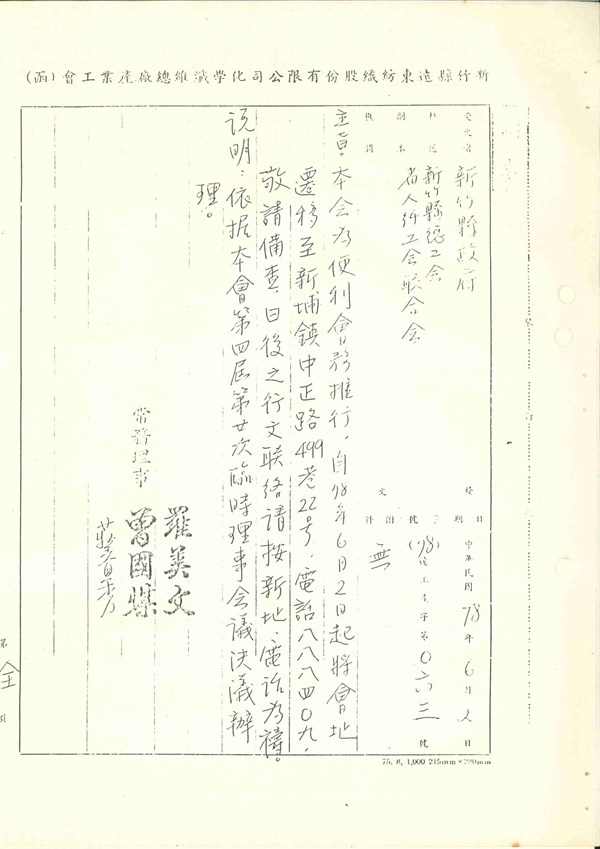 新竹縣遠東紡織股份有限公司化學纖維總廠產業工會(函)
受文者 新竹縣政府
副本 新竹縣總工會
機關 省人纤工会联合会
發文
日期 中華民國78年6月2日
字號 (78)化工文字第0六三號
附件 無
主旨:本会為便利會務推行,自78年6月2日起將會地
遷移至新埔鎮中正路499巷22号,電話八八八四0九,
敬請備查,日後之行文联络請按新地、電话為禱。
说明:依据本會第四屆第廿次臨時理事会議決議辦
理。
常務理事
羅美文
曾國煤
75. 8. 1,000 215mm×280mm
第 全 頁